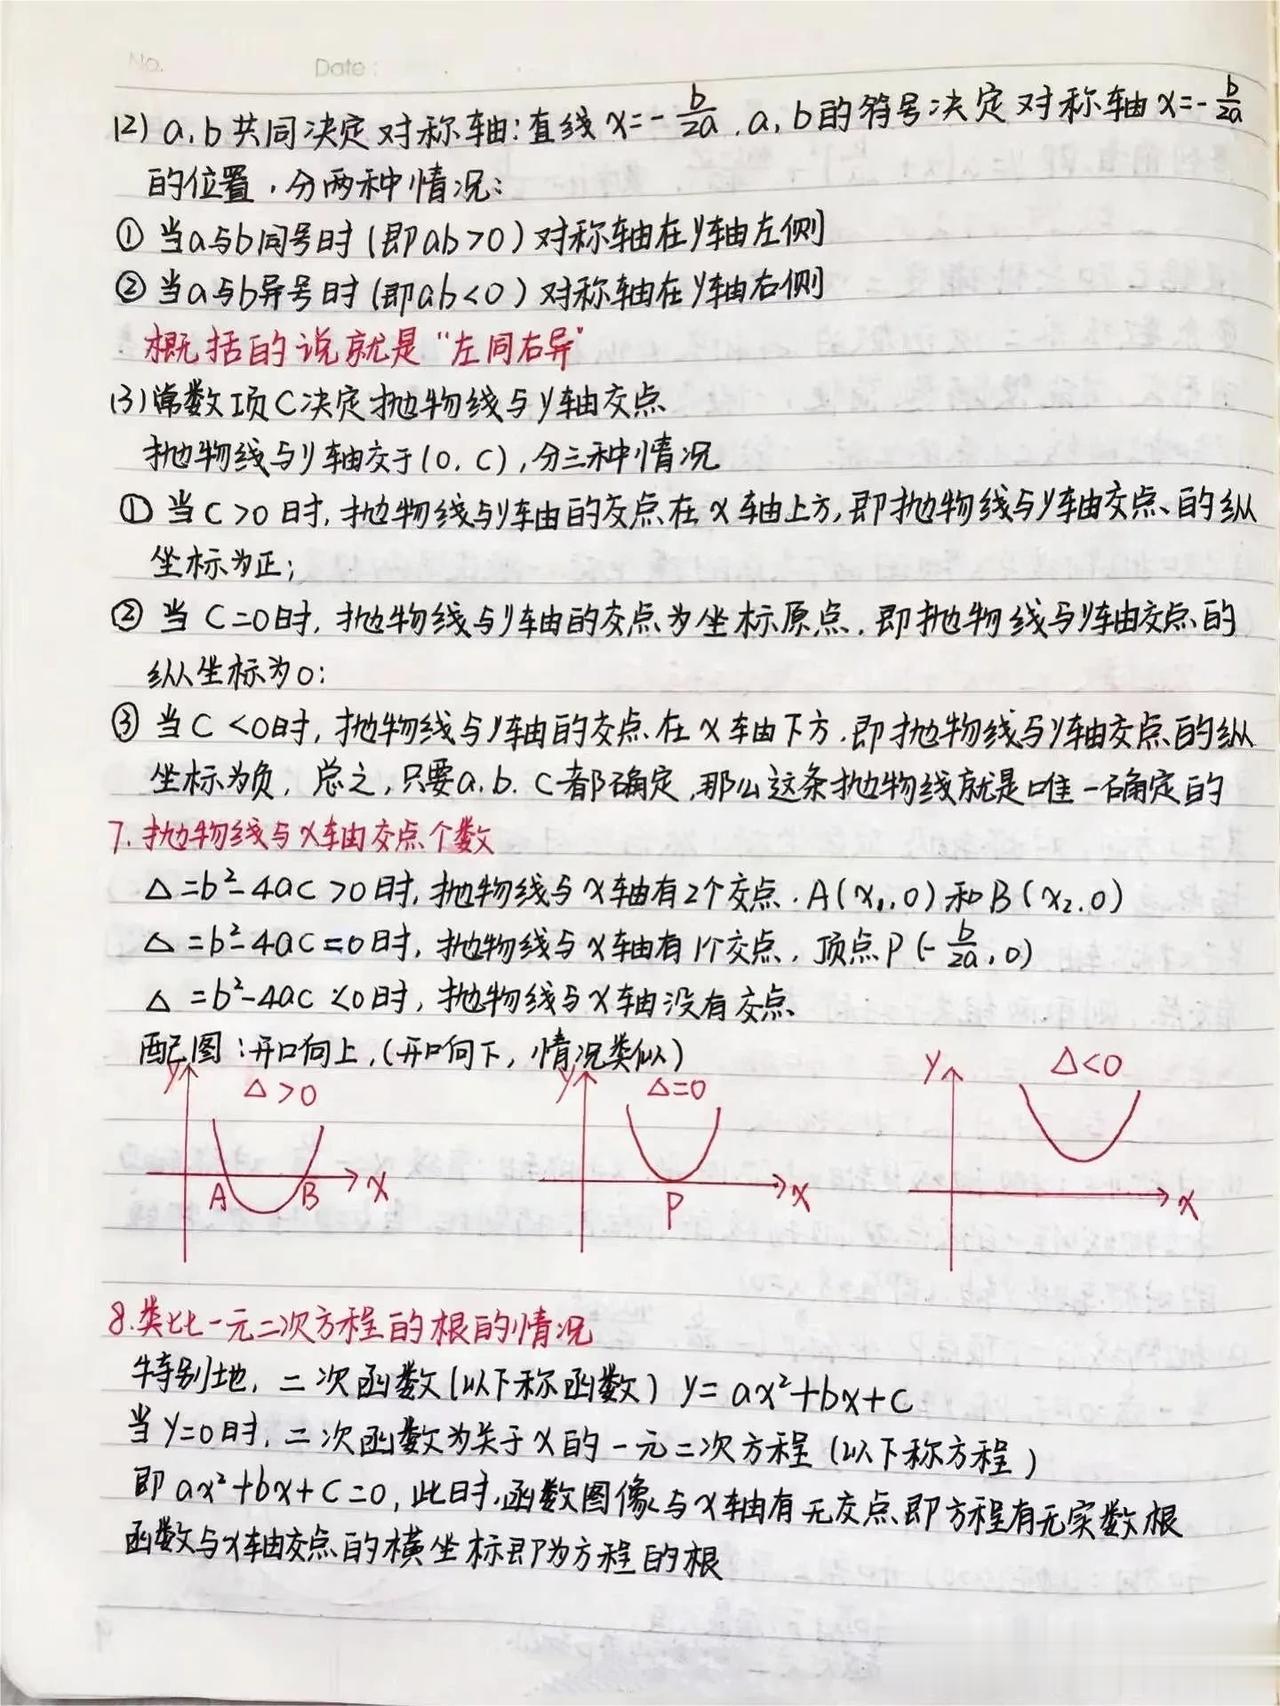 No.
Date:
(2) a,b共同决定对称轴:直线x=-b/2a,a,b的符号决定对称轴x=-b/2a
的位置,分两种情况:
① 当a与b同号时(即ab>0)对称轴在y轴左侧
② 当a与b异号时(即ab<0)对称轴在y轴右侧
概括的说就是“左同右异”
(3)常数项C决定抛物线与y轴交点
抛物线与y轴交于(0,C),分三种情况
① 当C>0时,抛物线与y轴的交点在x轴上方,即抛物线与y轴交点的纵
坐标为正;
② 当C=0时,抛物线与y轴的交点为坐标原点,即抛物线与y轴交点的
纵坐标为0:
③ 当C<0时,抛物线与y轴的交点在x轴下方.即抛物线与y轴交点的纵
坐标为负,总之,只要a.b.C都确定,那么这条抛物线就是唯一确定的
7.抛物线与x轴交点个数
△=b²-4ac>0时,抛物线与x轴有2个交点.A(x₁,0)和B(x₂.0)
△=b²-4ac=0时,抛物线与x轴有1个交点,顶点P(-b/2a,0)
△=b²-4ac<0时,抛物线与x轴没有交点
配图:开口向上,(开口向下,情况类似)
y △>0 A B x
y △=0 P x
y △<0 x
8.类比一元二次方程的根的情况
特别地,二次函数(以下称函数)y=ax²+bx+c
当y=0时,二次函数为关于x的一元二次方程(以下称方程)
即ax²+bx+c=0,此时,函数图像与x轴有无交点即方程有无实数根
函数与x轴交点的横坐标即为方程的根